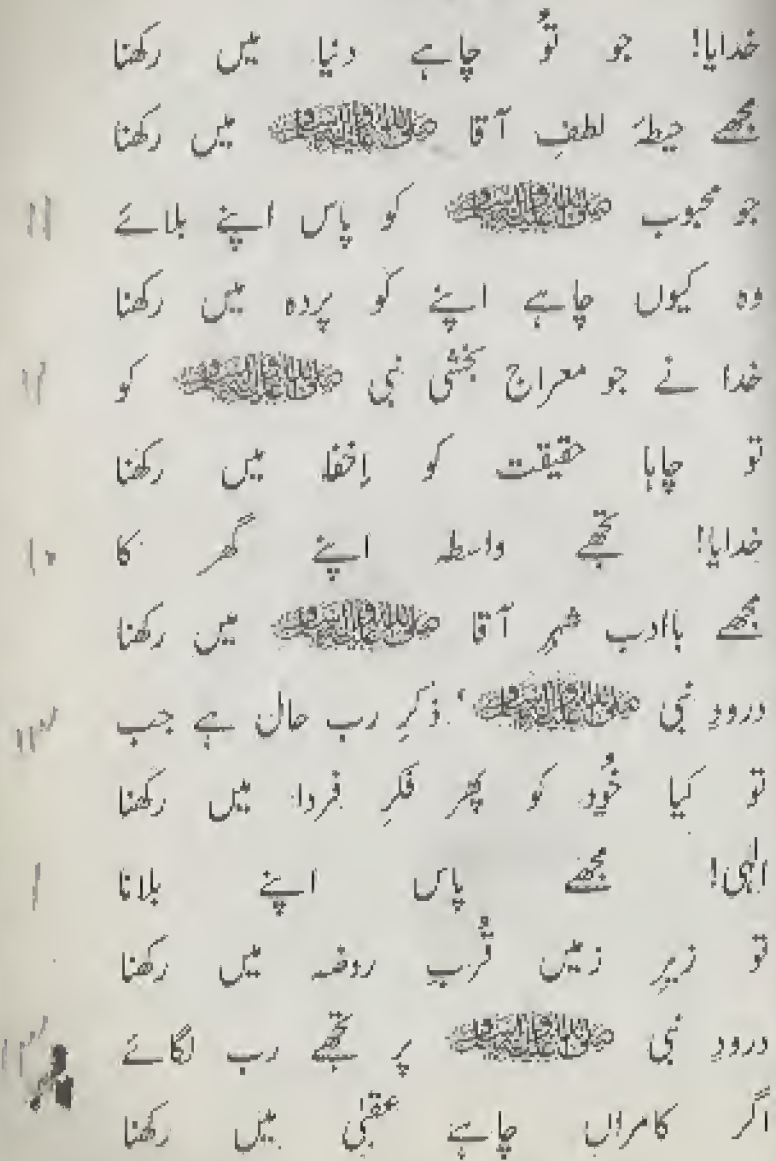 خدایا! جو تُو چاہے دنیا میں رکھنا
مجھے حیطۂ لطفِ آقا صلی اللہ علیہ وآلہ وسلم میں رکھنا
جو محبوب صلی اللہ علیہ وآلہ وسلم کو پاس اپنے بلائے ۱۱
وہ کیوں چاہے اپنے کو پردہ میں رکھنا
خدا نے جو معراج بخشی نبی صلی اللہ علیہ وآلہ وسلم کو ۱۲
تو چاہا حقیقت کو اِخفا میں رکھنا
خدایا! تجھے واسطہ اپنے گھر کا ۱۰
مجھے باادب شہرِ آقا صلی اللہ علیہ وآلہ وسلم میں رکھنا
درودِ نبی صلی اللہ علیہ وآلہ وسلم، ذکرِ رب حال ہے جب
تو کیا خُود کو پھر فکرِ فردا میں رکھنا
الٰہی! مجھے پاس اپنے بلانا
تو زیرِ زمیں قُربِ روضہ میں رکھنا
درودِ نبی صلی اللہ علیہ وآلہ وسلم پر تجھے رب لگائے
اگر کامراں چاہے عقبیٰ میں رکھنا